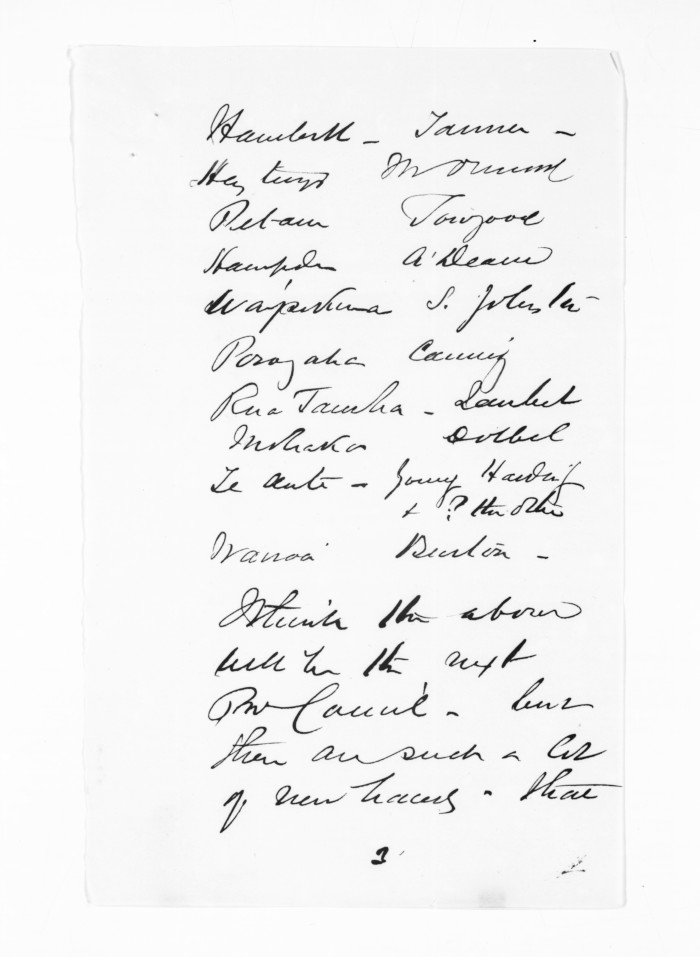 Havelock - Tanner -
Hastings McOrmond
Petane Towgood
Hampden A'Deane
Waipukurau S. Johnston
Porangahau Canning
Rua Taniwha - Lambert
Mohaka Dolbel
Te Aute - Young Harding
& ? the other
Wairoa Burton -
I think the above
will be the next
Prov Council - but
there are such a lot
of new hands - that
3